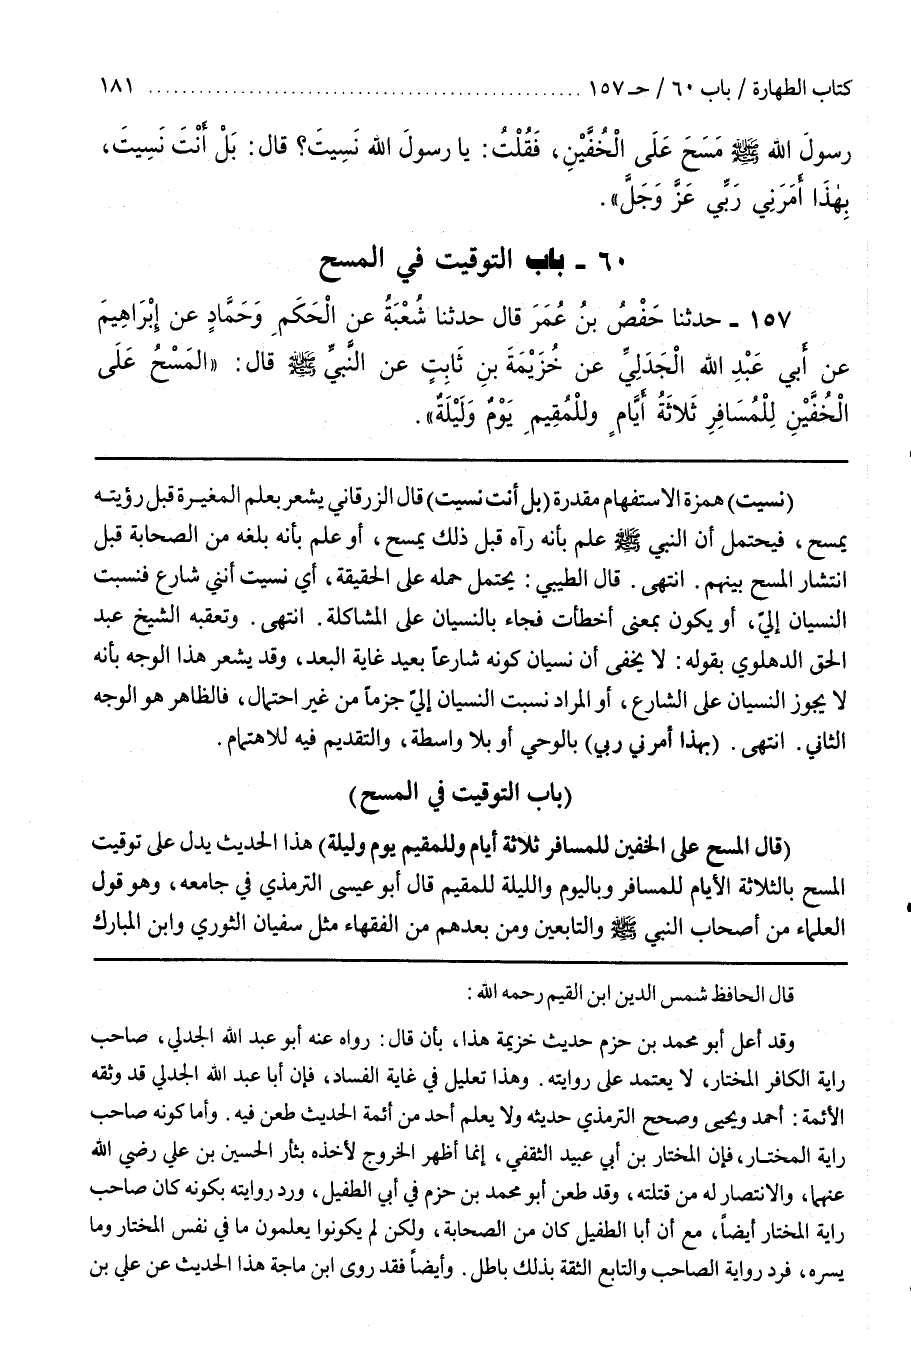 كتاب الطهارة / باب ٦٠ / حـ ١٥٧ ........................................................ ١٨١
رسولَ الله ﷺ مَسَحَ عَلَى الْخُفَّيْنِ، فَقُلْتُ: يا رسولَ الله نَسِيتَ؟ قال: بَلْ أَنْتَ نَسِيتَ،
بِهٰذَا أَمَرَنِي رَبِّي عَزَّ وَجَلَّ».
٦٠ - باب التوقيت في المسح
١٥٧ - حدثنا حَفْصُ بنُ عُمَرَ قال حدثنا شُعْبَةُ عن الْحَكَمِ وَحَمَّادٍ عن إِبْرَاهِيمَ
عن أَبي عَبْدِ الله الْجَدَلِيِّ عن خُزَيْمَةَ بنِ ثَابِتٍ عن النَّبيِّ ﷺ قال: «الْمَسْحُ عَلَى
الْخُفَّيْنِ لِلْمُسَافِرِ ثَلاثَةُ أَيَّامٍ وللْمُقِيمِ يَوْمٌ وَلَيْلَةٌ».
(نسيت) همزة الاستفهام مقدرة (بل أنت نسيت) قال الزرقاني يشعر بعلم المغيرة قبل رؤيته
يمسح، فيحتمل أن النبي ﷺ علم بأنه رآه قبل ذلك يمسح، أو علم بأنه بلغه من الصحابة قبل
انتشار المسح بينهم. انتهى. قال الطيبي: يحتمل حمله على الحقيقة، أي نسيت أنني شارع فنسبت
النسيان إليّ، أو يكون بمعنى أخطأت فجاء بالنسيان على المشاكلة. انتهى. وتعقبه الشيخ عبد
الحق الدهلوي بقوله: لا يخفى أن نسيان كونه شارعاً بعيد غاية البعد، وقد يشعر هذا الوجه بأنه
لا يجوز النسيان على الشارع، أو المراد نسبت النسيان إليّ جزماً من غير احتمال، فالظاهر هو الوجه
الثاني. انتهى. (بهذا أمرني ربي) بالوحي أو بلا واسطة، والتقديم فيه للاهتمام.
(باب التوقيت في المسح)
(قال المسح على الخفين للمسافر ثلاثة أيام وللمقيم يوم وليلة) هذا الحديث يدل على توقيت
المسح بالثلاثة الأيام للمسافر وباليوم والليلة للمقيم قال أبو عيسى الترمذي في جامعه، وهو قول
العلماء من أصحاب النبي ﷺ والتابعين ومن بعدهم من الفقهاء مثل سفيان الثوري وابن المبارك
قال الحافظ شمس الدين ابن القيم رحمه الله:
وقد أعل أبو محمد بن حزم حديث خزيمة هذا، بأن قال: رواه عنه أبو عبد الله الجدلي، صاحب
راية الكافر المختار، لا يعتمد على روايته. وهذا تعليل في غاية الفساد، فإن أبا عبد الله الجدلي قد وثقه
الأئمة: أحمد ويحيى وصحح الترمذي حديثه ولا يعلم أحد من أئمة الحديث طعن فيه. وأما كونه صاحب
راية المختار، فإن المختار بن أبي عبيد الثقفي، إنما أظهر الخروج لأخذه بثأر الحسين بن علي رضي الله
عنهما، والانتصار له من قتلته، وقد طعن أبو محمد بن حزم في أبي الطفيل، ورد روايته بكونه كان صاحب
راية المختار أيضاً، مع أن أبا الطفيل كان من الصحابة، ولكن لم يكونوا يعلمون ما في نفس المختار وما
يسره، فرد رواية الصاحب والتابع الثقة بذلك باطل. وأيضاً فقد روى ابن ماجة هذا الحديث عن علي بن